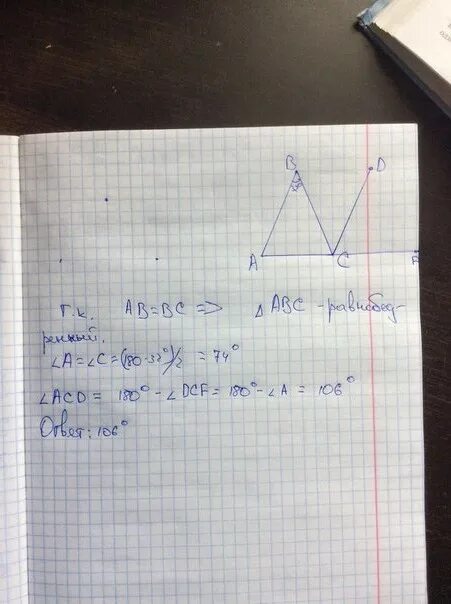 B
D
A
C
F
Т.к. AB=BC => △ABC -равнобед-
ренный.
∠A=∠C=(180-32°)/2 = 74°
∠ACD = 180° - ∠DCF = 180° - ∠A = 106°
Ответ: 106°